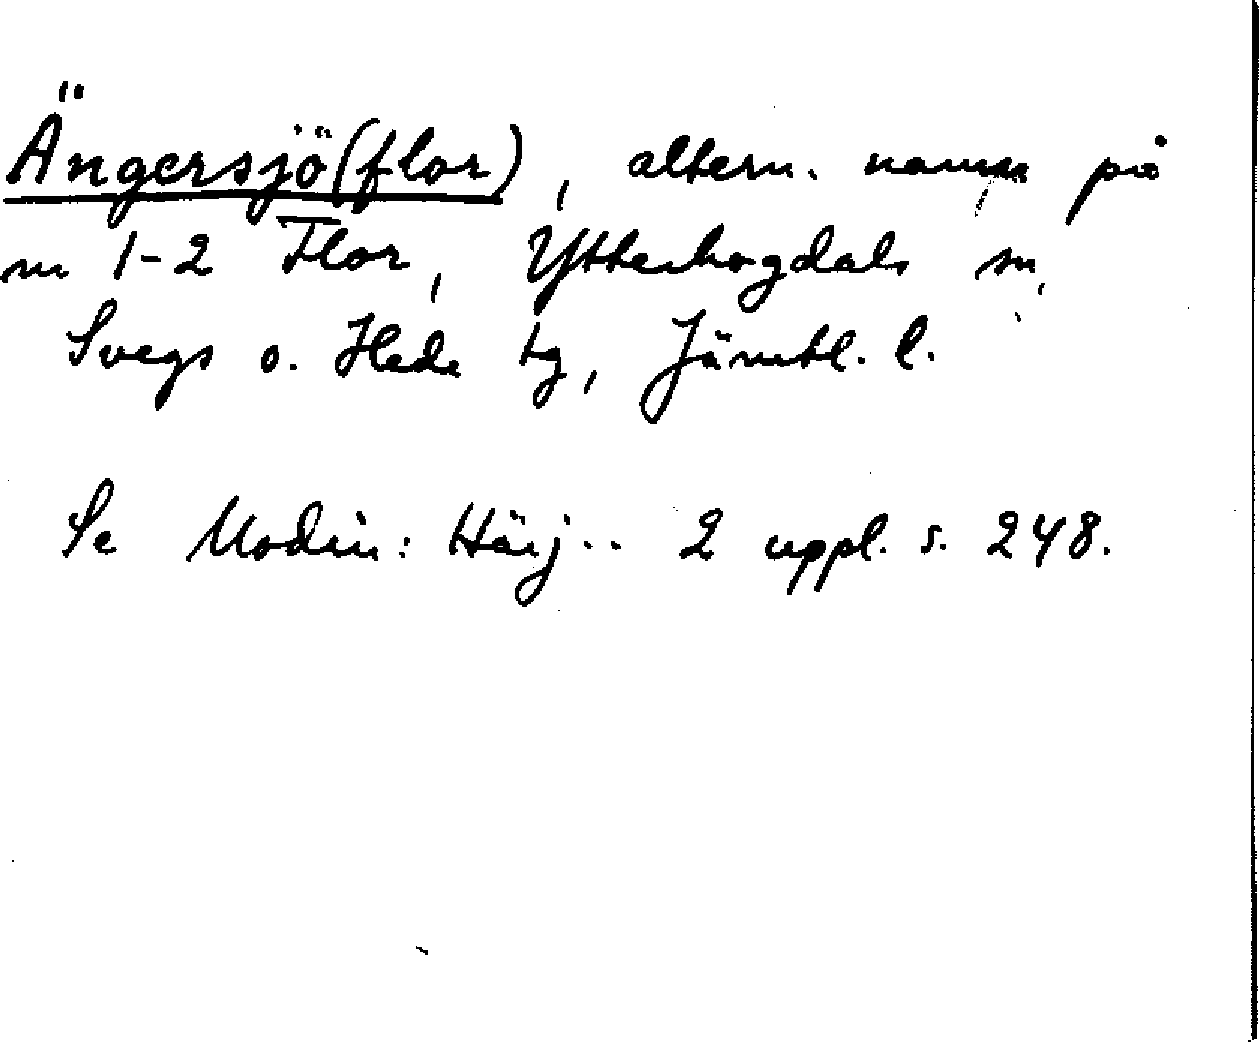 Ängersjö(flor), altern. namn på
nr 1-2 Flor, Ytterhogdals sn,
Svegs o. Hede tg, Jämtl. l.
Se Modin: Härj... 2 uppl. s. 248.